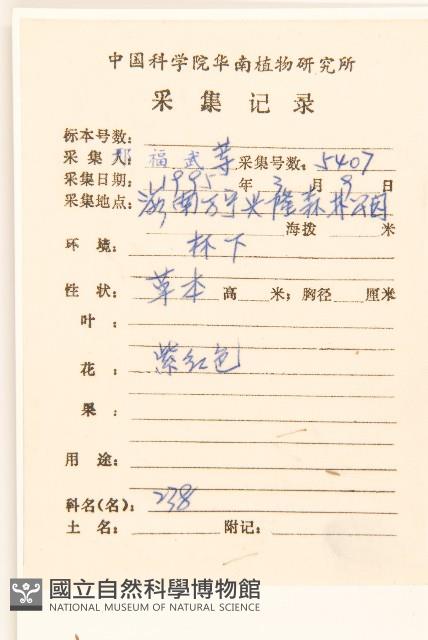 中国科学院华南植物研究所
采集记录
标本号数:
采集人: 邢福武等 采集号数: 5407
采集日期: 1995年3月9日
采集地点: 海南万宁兴隆森林公园
海拨 米
环境: 林下
性状: 草本 高 米; 胸径 厘米
叶:
花: 紫红色
果:
用途:
科名(名): 238
土名: 附记:
國立自然科學博物館
NATIONAL MUSEUM OF NATURAL SCIENCE